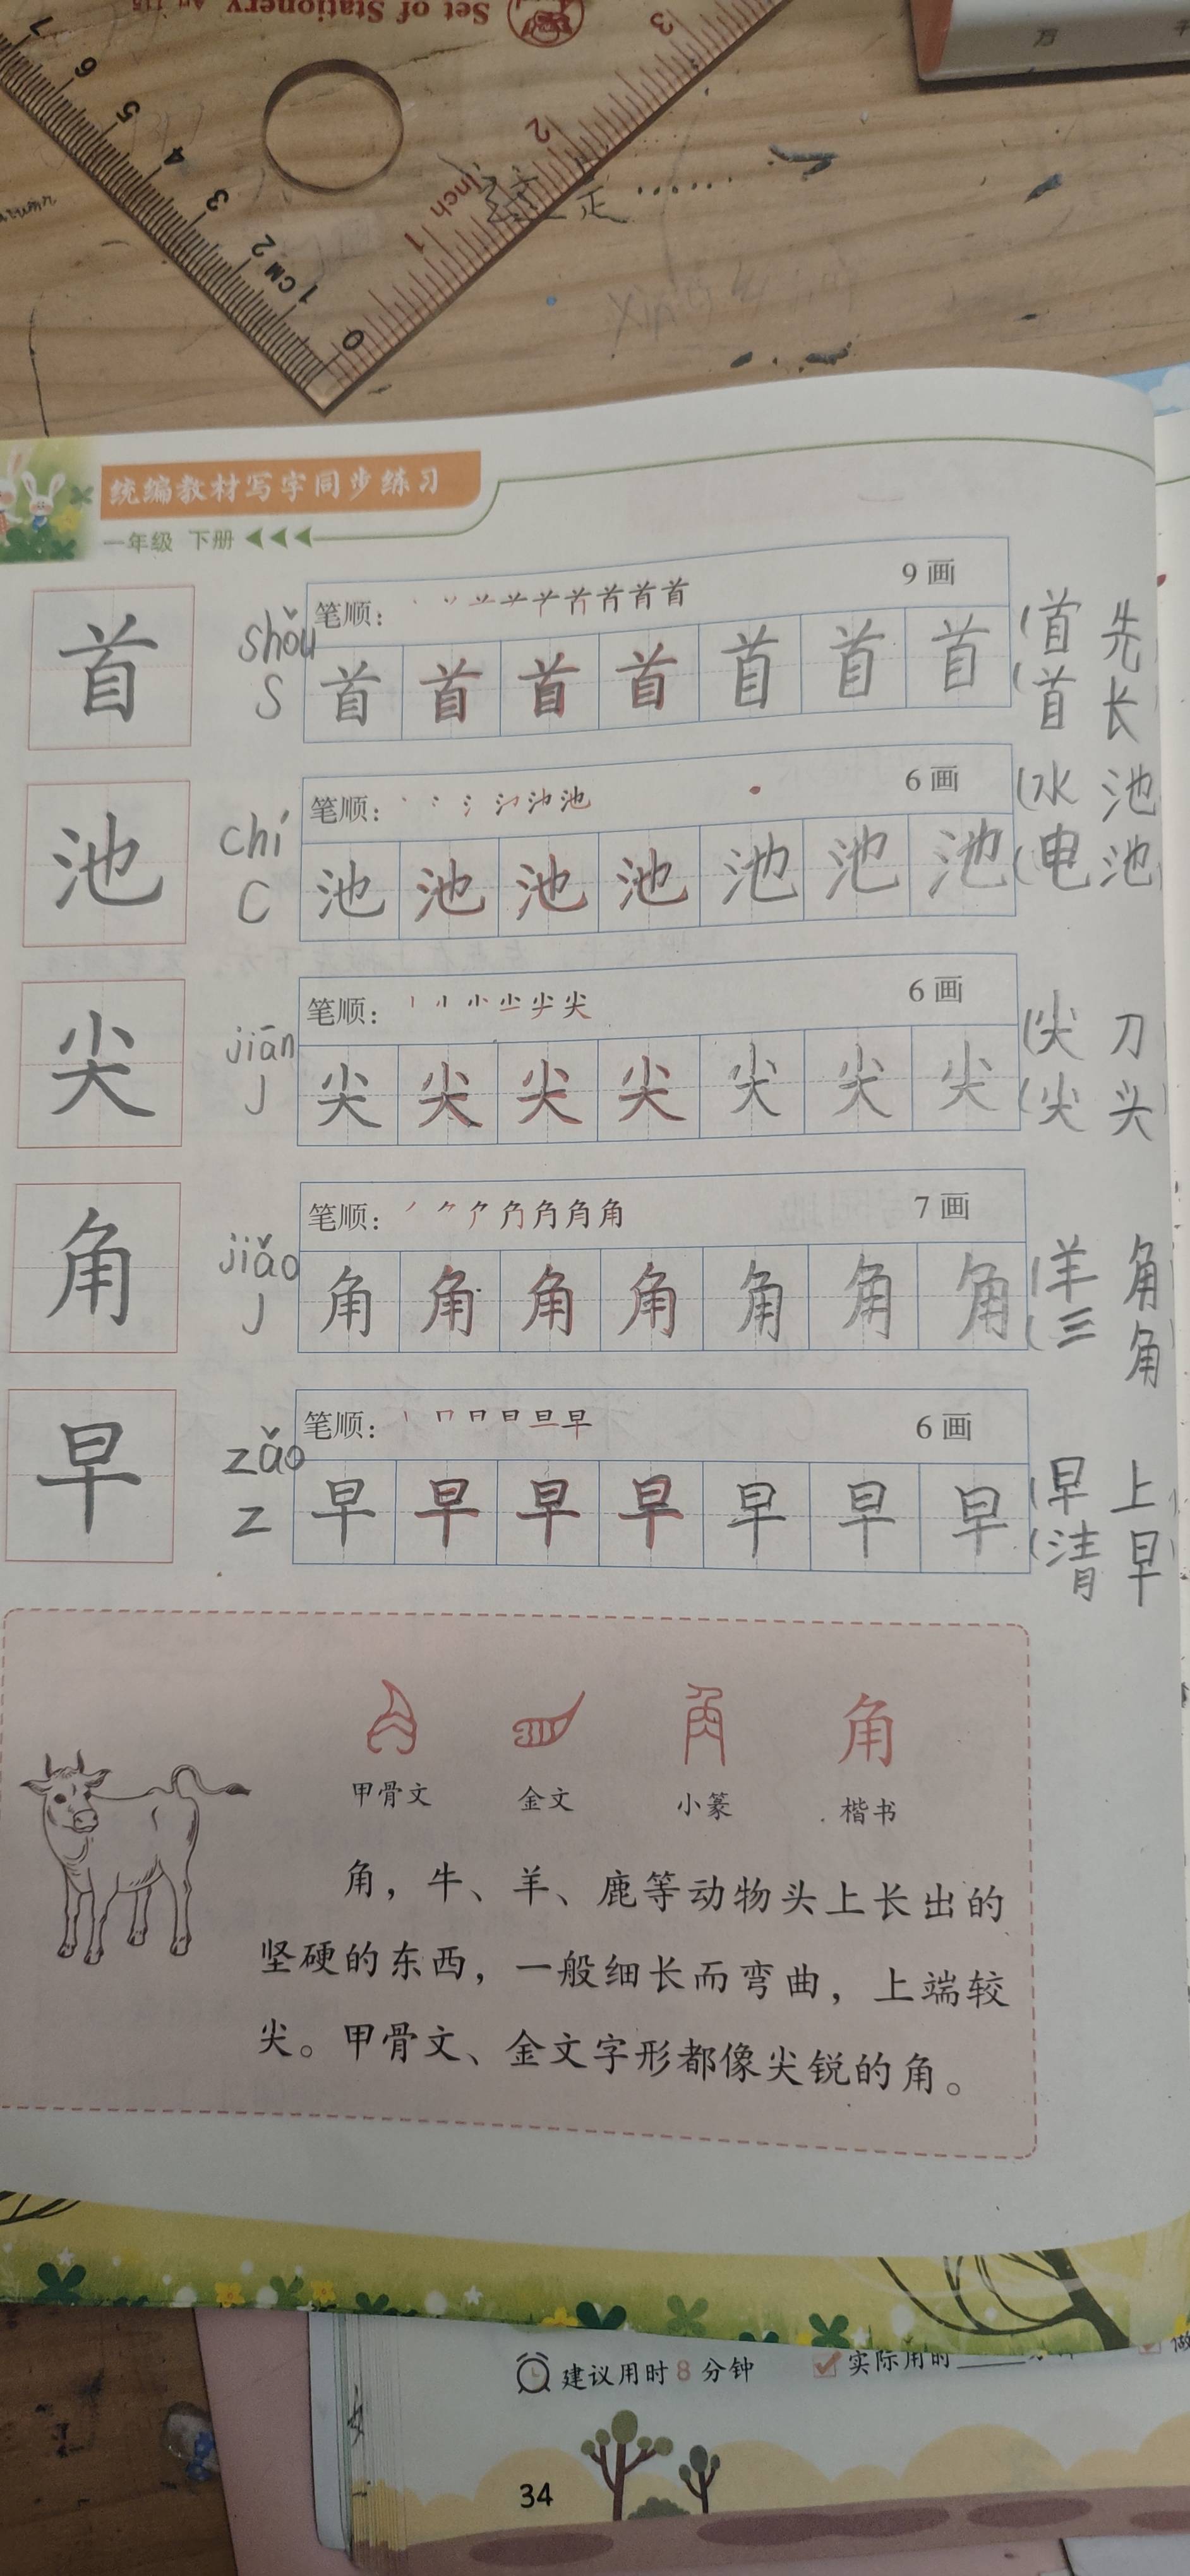 Set of Stationery
3
2
inch
1
0
7
6
5
4
3
2
1CM
万
统编教材写字同步练习
一年级 下册
首
shǒu
S
笔顺: 首
9画
首 首 首 首 首 首 首
(首 先
(首 长
池
chí
C
笔顺: 池
6画
池 池 池 池 池 池 池
(水 池
(电 池
尖
jiān
J
笔顺: 尖
6画
尖 尖 尖 尖 尖 尖 尖
(尖 刀
(尖 头
角
jiǎo
J
笔顺: 角
7画
角 角 角 角 角 角 角
(羊 角
(三 角
早
zǎo
Z
笔顺: 早
6画
早 早 早 早 早 早 早
(早 上
(清 早
角
甲骨文 金文 小篆 楷书
角，牛、羊、鹿等动物头上长出的
坚硬的东西，一般细长而弯曲，上端较
尖。甲骨文、金文字形都像尖锐的角。
建议用时8分钟 实际用时
34